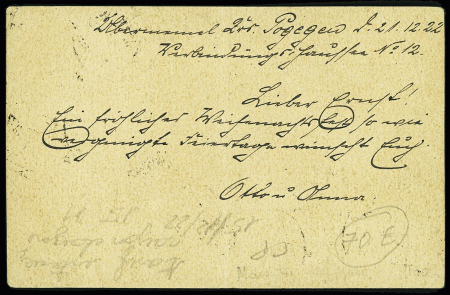 Übermemel Krs. Pogegen d. 21.12.22
Verbindungschaussee No 12.
Lieber Ernst!
Ein fröhliches Weihnachtsfest so wie
vergnügte Feiertage wünscht Euch
Otto u Anna
70 E